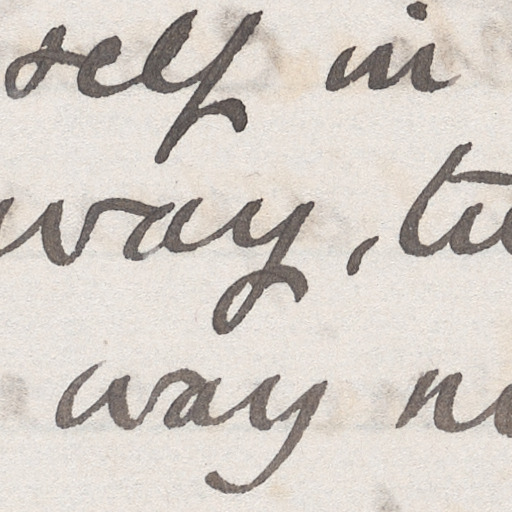 self in
way,
way